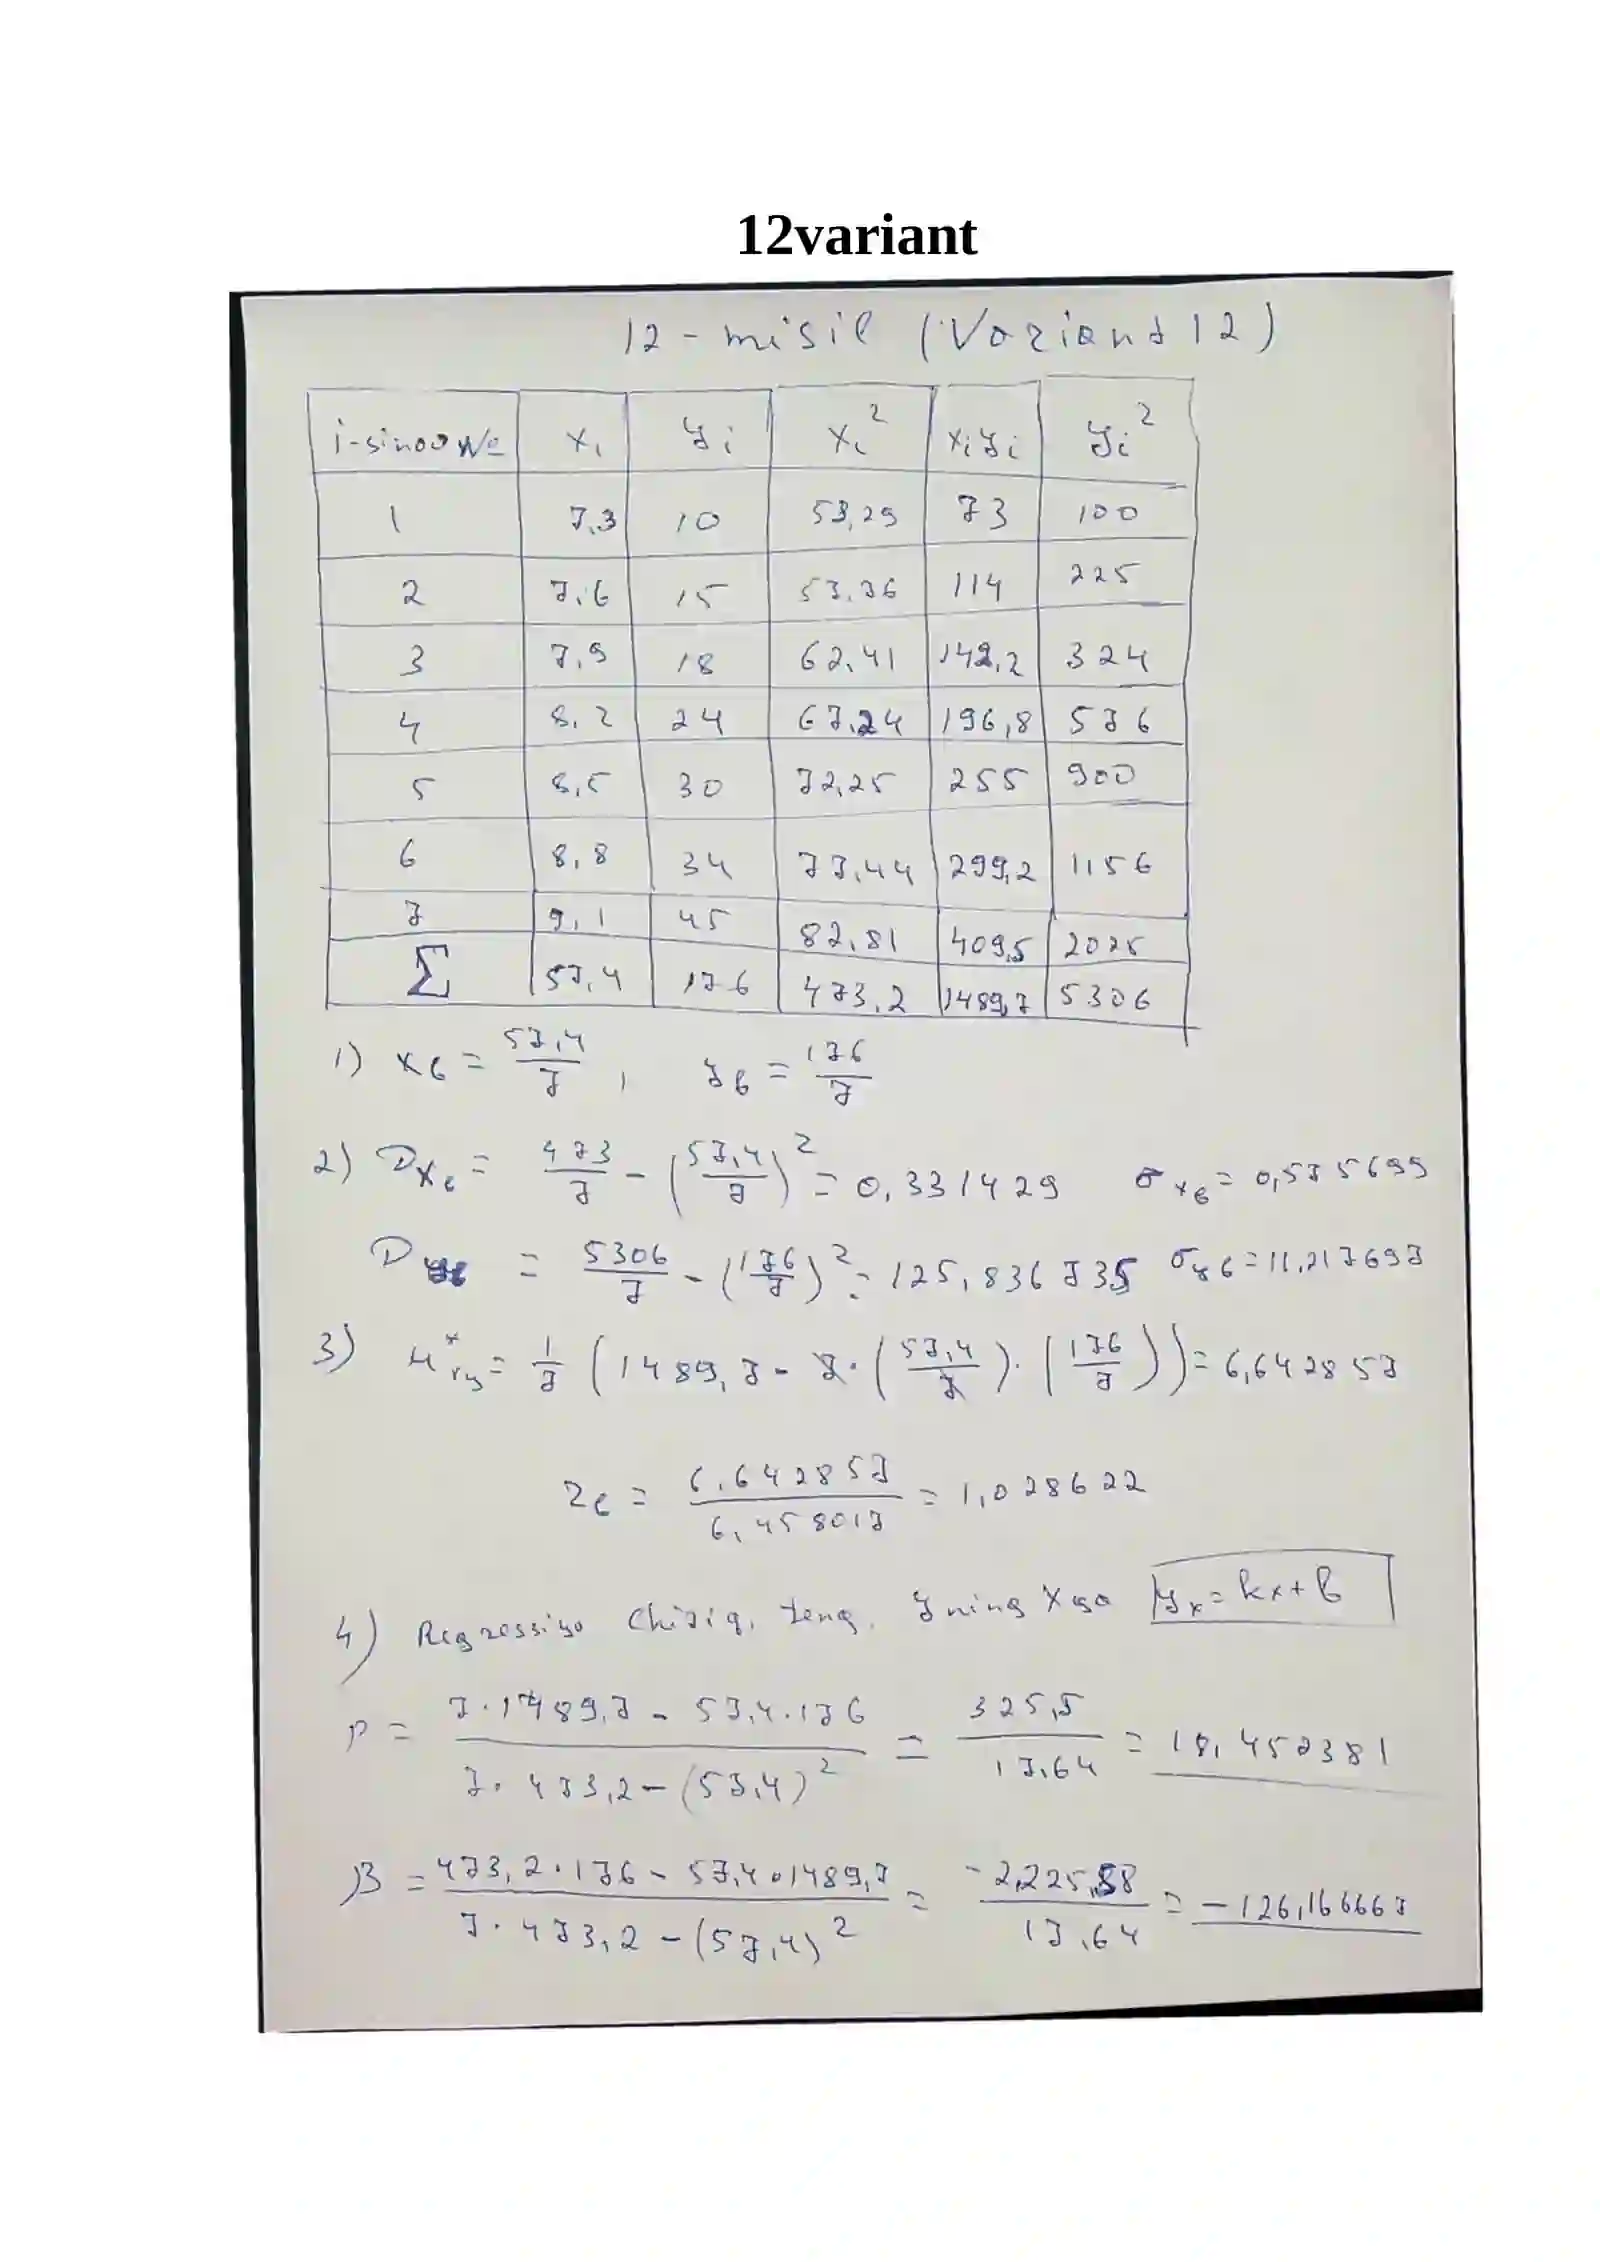 12variant
12-misil (Variant 12)
i-sinov № xᵢ yᵢ xᵢ² xᵢyᵢ yᵢ²
1 7,3 10 53,29 73 100
2 7,6 15 53,36 114 225
3 7,9 18 62,41 142,2 324
4 8,2 24 67,24 196,8 576
5 8,5 30 72,25 255 900
6 8,8 34 77,44 299,2 1156
7 9,1 45 82,81 409,5 2025
Σ 57,4 176 473,2 1489,7 5306
1) xв = 57,4/7 , yв = 176/7
2) Dxв = 473/7 - (57,4/7)² = 0,331429 σxв = 0,575699
Dyв = 5306/7 - (176/7)² = 125,836735 σyв = 11,217697
3) μ*xy = 1/7 (1489,7 - 7·(57,4/7)·(176/7)) = 6,642857
rв = 6,642857/6,458017 = 1,028622
4) Regressiya Chiziq. teng. y ning X ga yx = kx+b
P = (7·1489,7 - 57,4·176)/(7·473,2 - (57,4)²) = 325,5/17,64 = 18,452381
β = (473,2·176 - 57,4·1489,7)/(7·473,2 - (57,4)²) = -2,225,58/17,64 = -126,166667